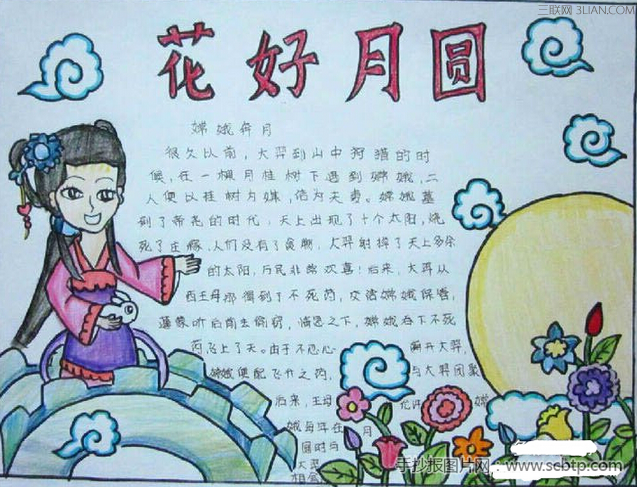 三联网 3LIAN.COM
花好月圆
嫦娥奔月
很久以前，大羿到山中狩猎的时
候，在一棵月桂树下遇到嫦娥，二
人便以桂树为媒，结为夫妻。嫦娥
到了帝尧的时代，天上出现了十个太阳，烧
死了庄稼，人们没有了食物，大羿射掉了天上多余
的太阳，万民非常欢喜！后来，大羿从
西王母那得到了不死药，交给嫦娥保管，
逢蒙听后前去偷窃，情急之下，嫦娥吞下不死
药飞上了天。由于不忍心 离开大羿，
嫦娥便 飞升之药， 与大羿团聚
后来，王母 允许 嫦
娥每年在 月
圆时与
大羿
相会
手抄报图片网：www.scbtp.com